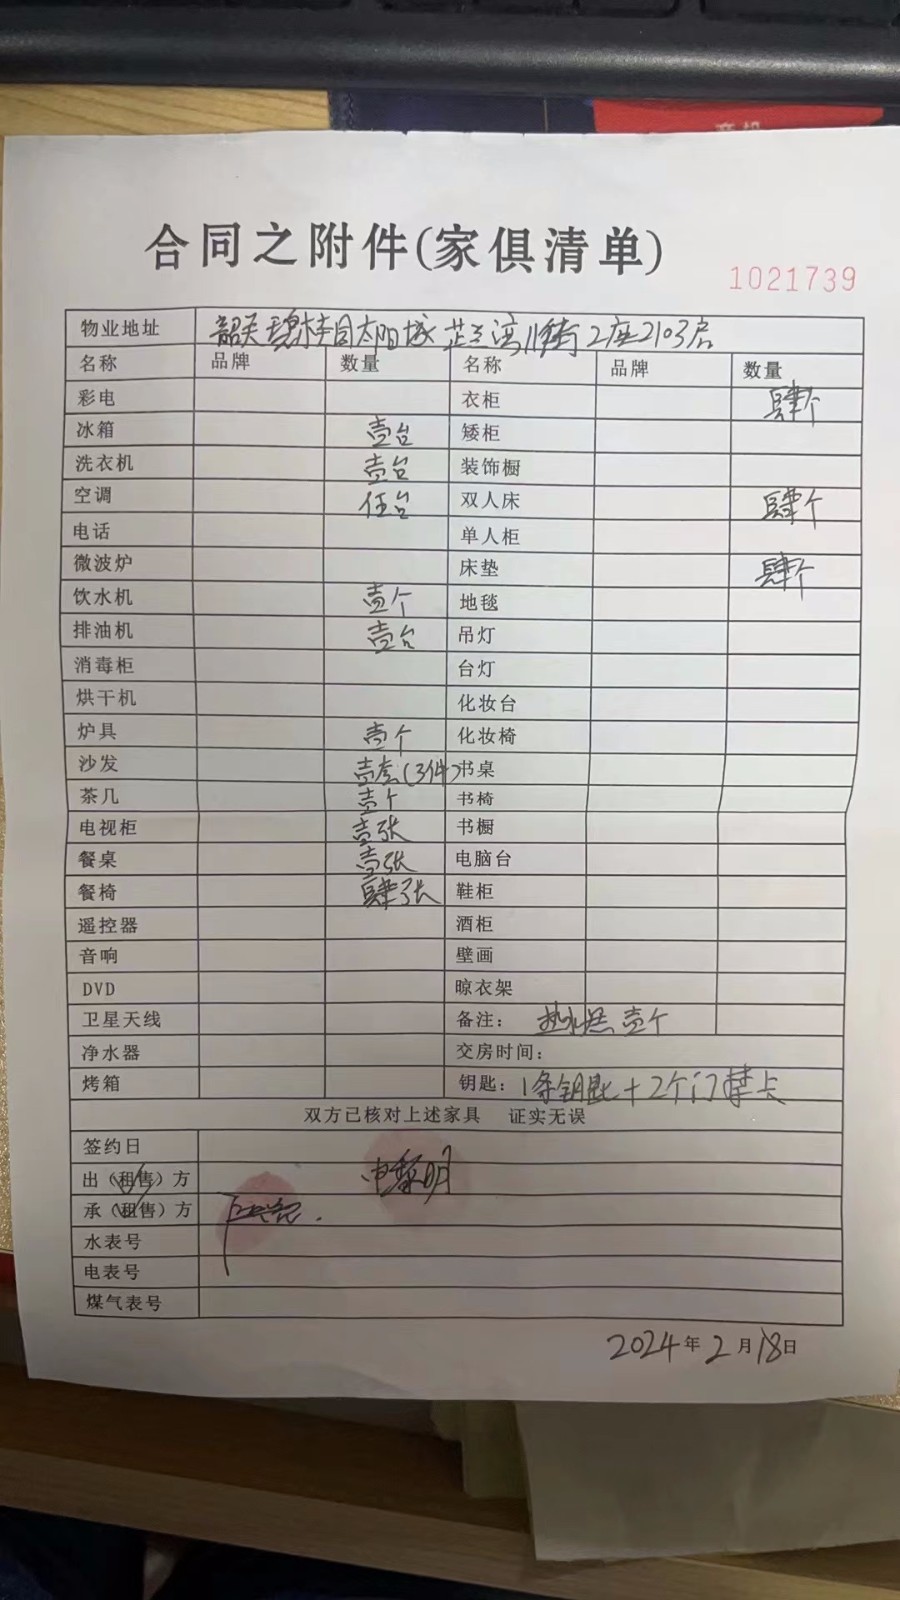 合同之附件(家俱清单)
1021739
物业地址 韶关碧桂园太阳城芷兰湾八街2座2103房
名称 品牌 数量 名称 品牌 数量
彩电 衣柜 肆个
冰箱 壹台 矮柜
洗衣机 壹台 装饰橱
空调 伍台 双人床 肆个
电话 单人柜
微波炉 床垫 肆个
饮水机 壹个 地毯
排油机 壹台 吊灯
消毒柜 台灯
烘干机 化妆台
炉具 壹个 化妆椅
沙发 壹套(3件) 书桌
茶几 壹个 书椅
电视柜 壹张 书橱
餐桌 壹张 电脑台
餐椅 肆张 鞋柜
遥控器 酒柜
音响 壁画
DVD 晾衣架
卫星天线 备注: 热水器壹个
净水器 交房时间:
烤箱 钥匙: 1条钥匙+2个门禁卡
双方已核对上述家具 证实无误
签约日
出(租售)方
承(租售)方
水表号
电表号
煤气表号
2024年2月18日